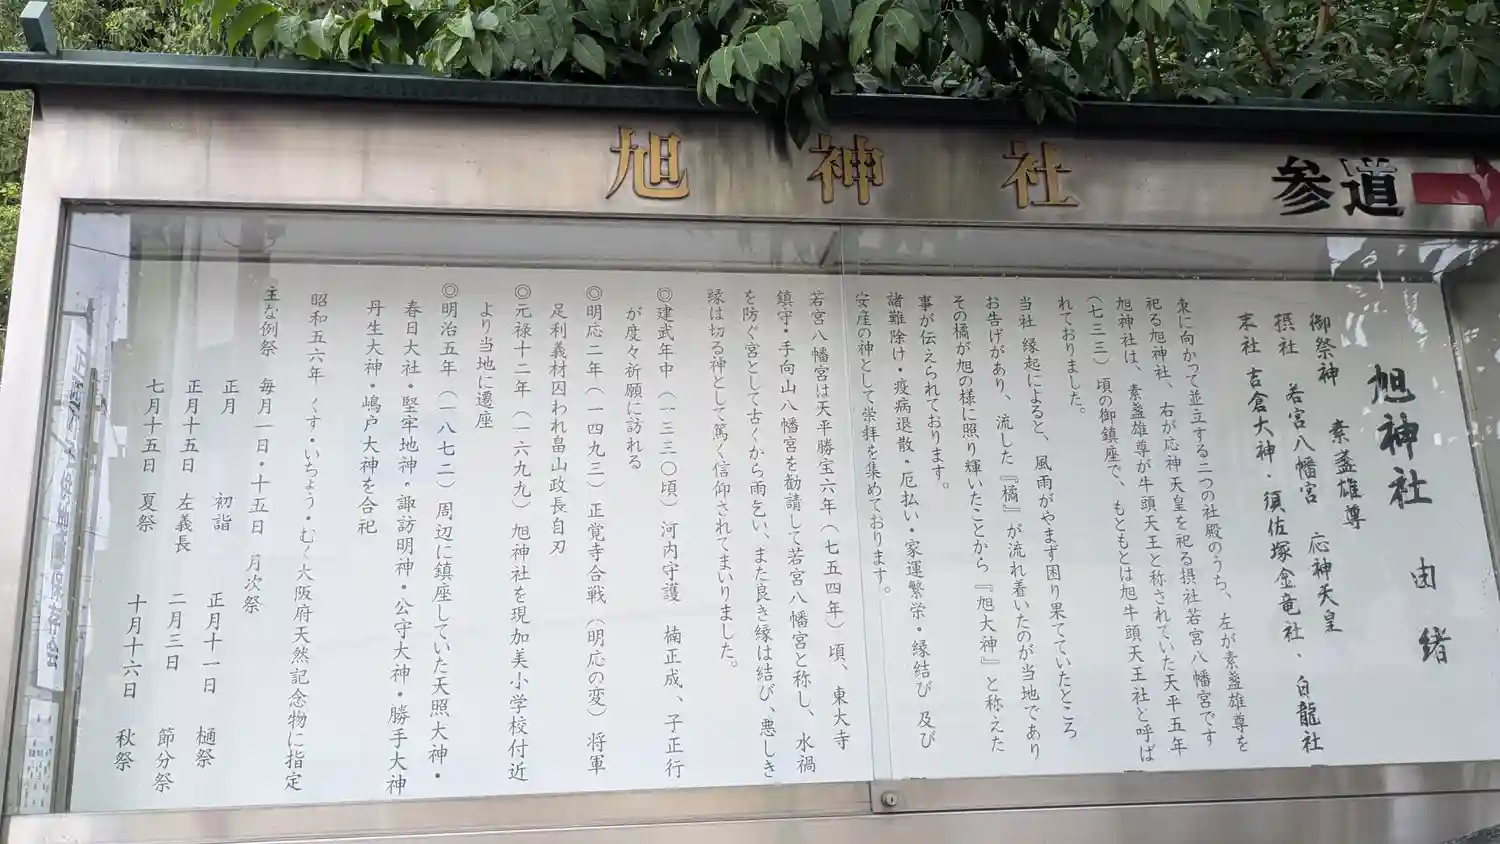 旭神社
参道
旭神社 由緒
御祭神 素盞雄尊
摂社 若宮八幡宮 応神天皇
末社 吉倉大神・須佐塚金竜社、白龍社
東に向かって並立する二つの社殿のうち、左が素盞雄尊を
祀る旭神社、右が応神天皇を祀る摂社若宮八幡宮です
旭神社は、素盞雄尊が牛頭天王と称されていた天平五年
(七三三)頃の御鎮座で、もともとは旭牛頭天王社と呼ば
れておりました。
当社縁起によると、風雨がやまず困り果てていたところ
お告げがあり、流した『橘』が流れ着いたのが当地であり
その橘が旭の様に照り輝いたことから『旭大神』と称えた
事が伝えられております。
諸難除け・疫病退散・厄払い・家運繁栄・縁結び 及び
安産の神として崇拝を集めております。
若宮八幡宮は天平勝宝六年(七五四年)頃、東大寺
鎮守・手向山八幡宮を勧請して若宮八幡宮と称し、水禍
を防ぐ宮として古くから雨乞い、また良き縁は結び、悪しき
縁は切る神として篤く信仰されてまいりました。
◎建武年中(一三三〇頃)河内守護 楠正成、子正行
が度々祈願に訪れる
◎明応二年(一四九三)正覚寺合戦(明応の変)将軍
足利義材囚われ畠山政長自刃
◎元禄十二年(一六九九)旭神社を現加美小学校付近
より当地に遷座
◎明治五年(一八七二)周辺に鎮座していた天照大神・
春日大社・堅牢地神・諏訪明神・公守大神・勝手大神
丹生大神・嶋戸大神を合祀
昭和五六年 くす・いちょう・むく大阪府天然記念物に指定
主な例祭 毎月一日・十五日 月次祭
正月 初詣 正月十一日 樋祭
正月十五日 左義長 二月三日 節分祭
七月十五日 夏祭 十月十六日 秋祭